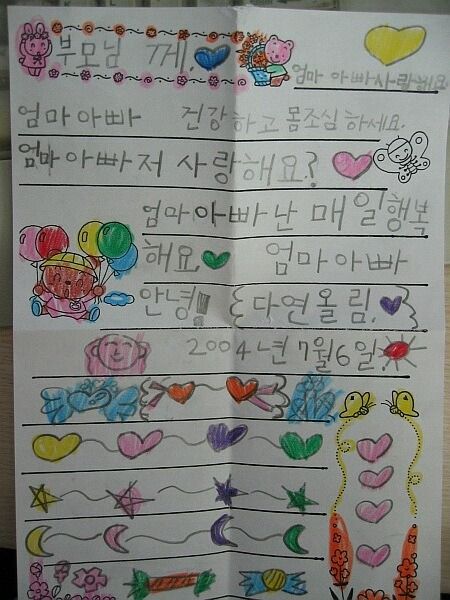 부모님 께.
엄마 아빠사랑해요
엄마아빠 건강하고 몸조심하세요.
엄마아빠저 사랑해요?
엄마아빠난 매일행복
해요. 엄마아빠
안녕!!! 다연올림.
2004년7월6일.